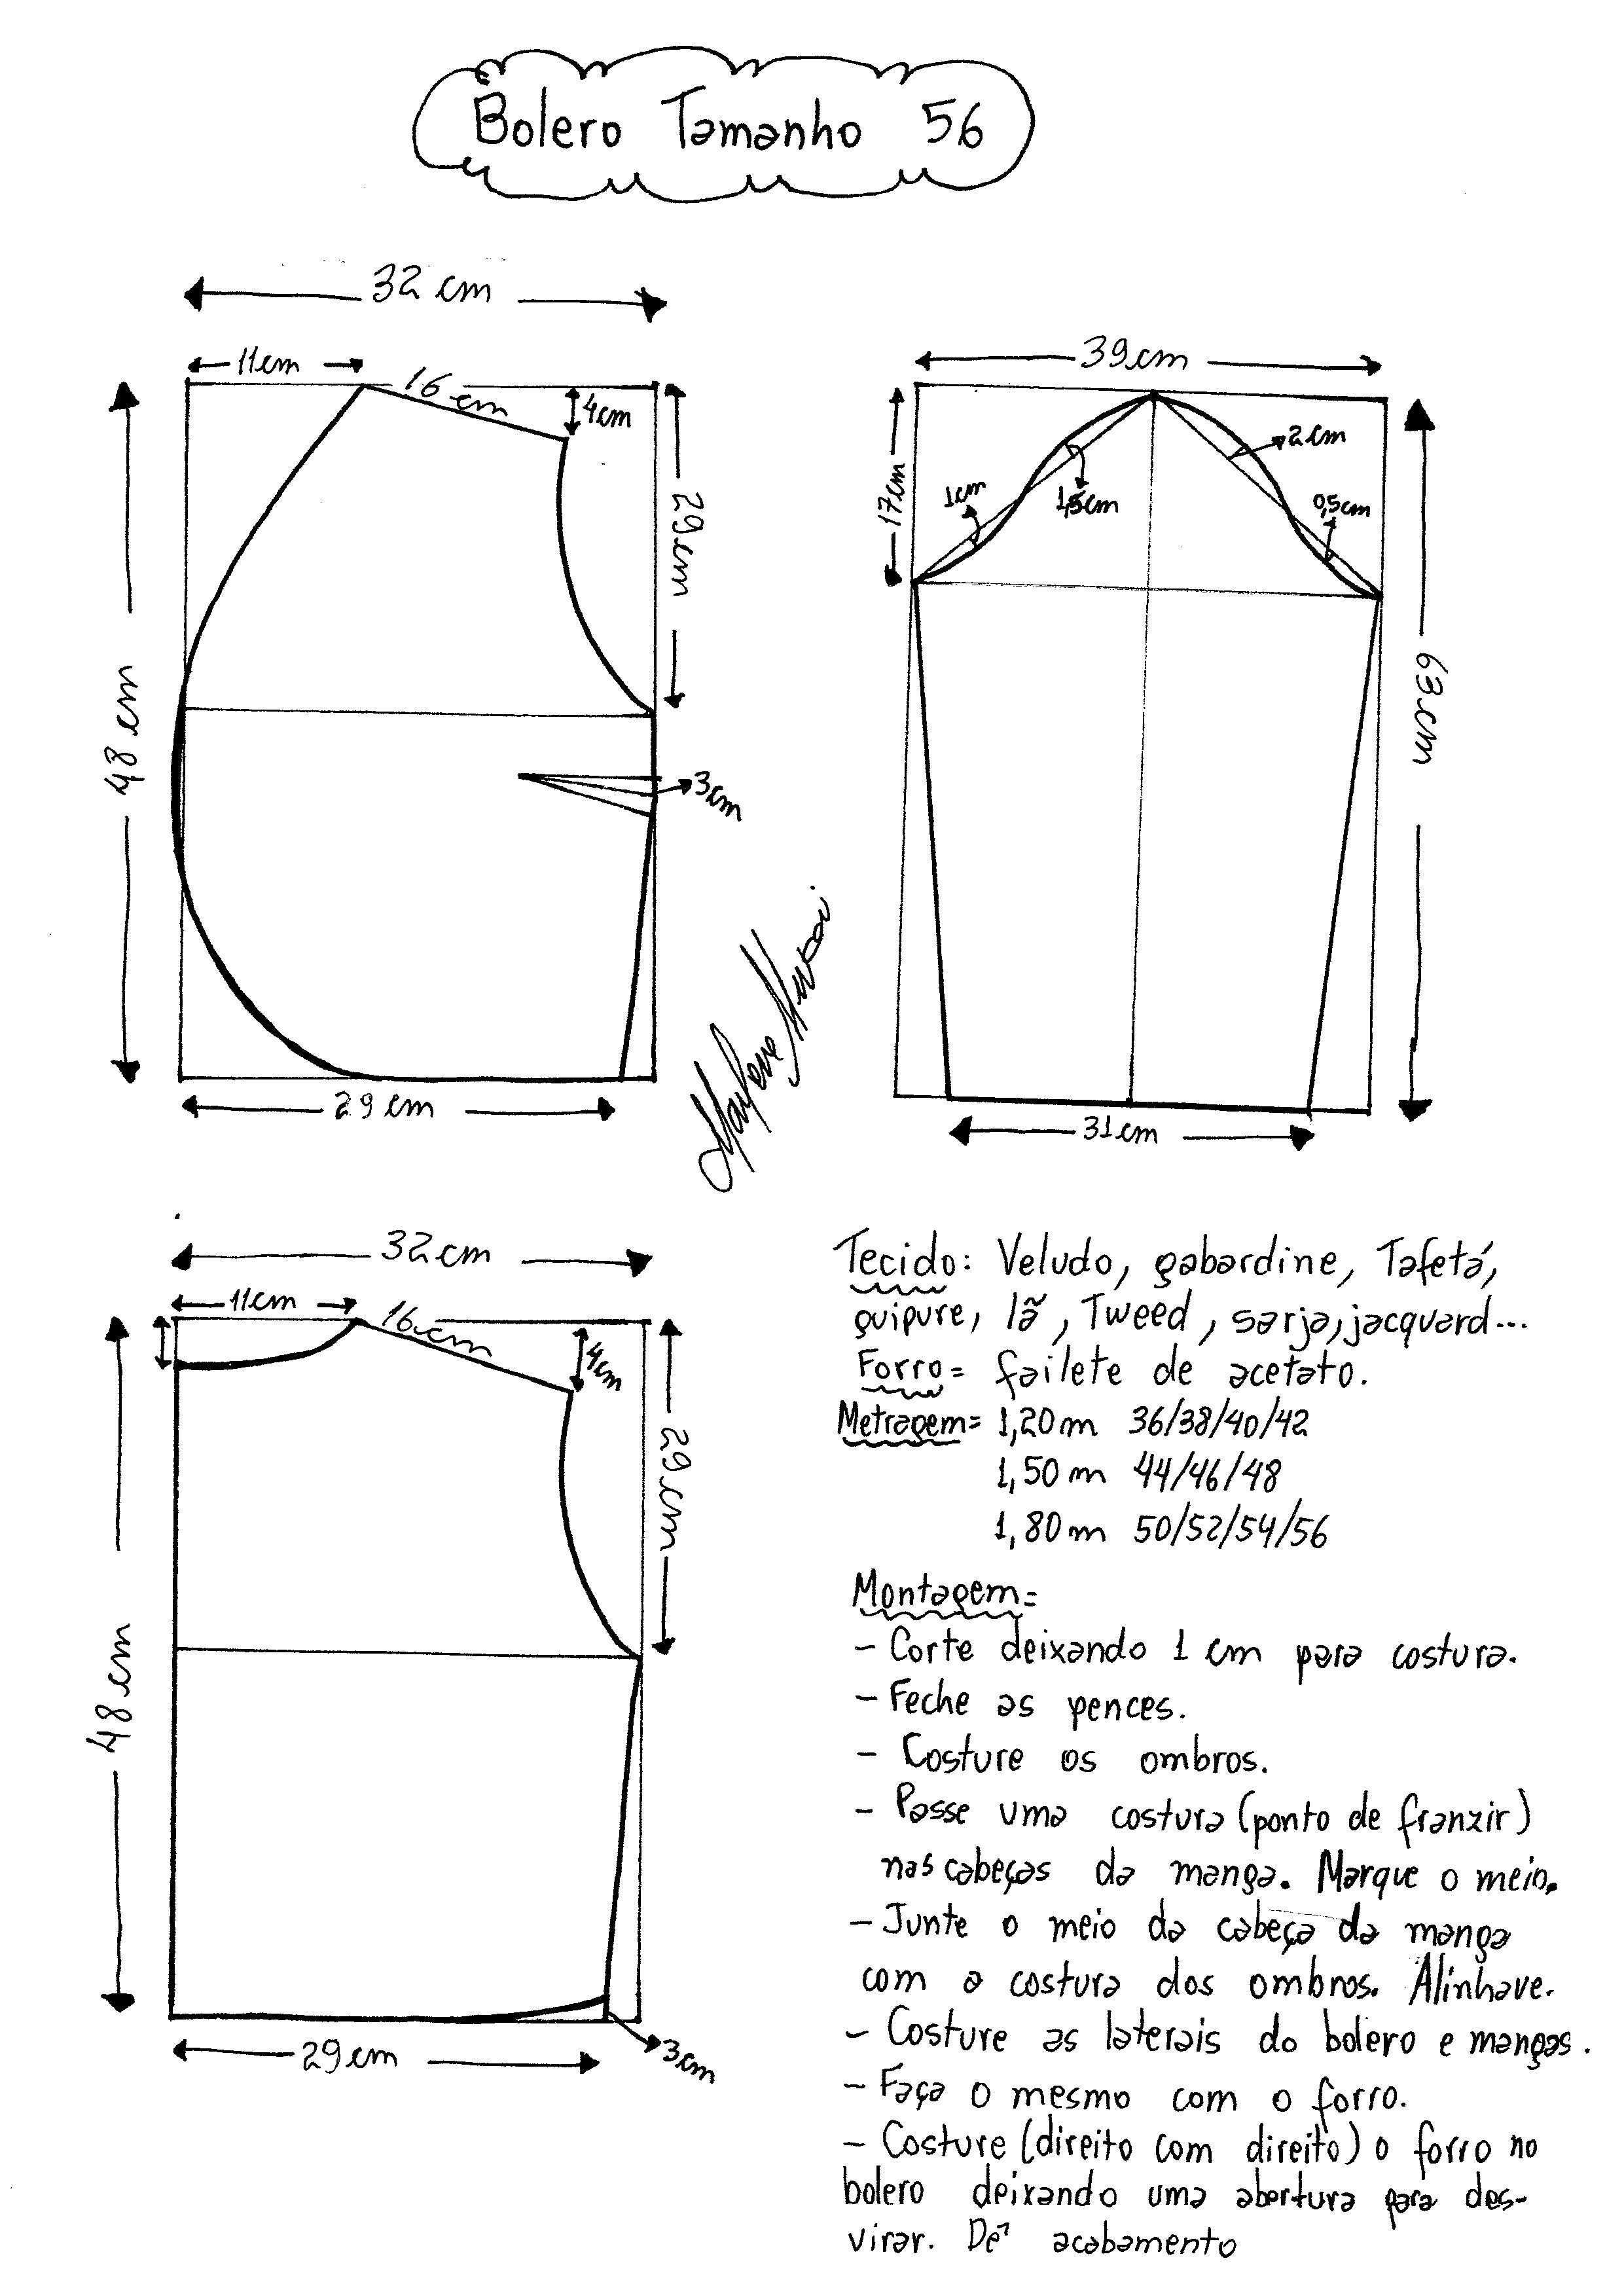 Bolero Tamanho 56
32 cm
11cm
16 cm
4cm
29cm
48 cm
3cm
29 cm
39cm
17cm
1cm
1,5cm
2cm
0,5cm
63cm
31cm
32cm
11cm
16cm
4cm
29cm
48cm
29cm
3cm
Tecido: Veludo, gabardine, Tafetá,
guipure, lã, Tweed, sarja, jacquard...
Forro= failete de acetato.
Metragem= 1,20m 36/38/40/42
1,50m 44/46/48
1,80m 50/52/54/56
Montagem=
- Corte deixando 1 cm para costura.
- Feche as pences.
- Costure os ombros.
- Passe uma costura (ponto de franzir)
nas cabeças da manga. Marque o meio.
- Junte o meio da cabeça da manga
com a costura dos ombros. Alinhave.
- Costure as laterais do bolero e mangas.
- Faça o mesmo com o forro.
- Costure (direito com direito) o forro no
bolero deixando uma abertura para des-
virar. Dê acabamento